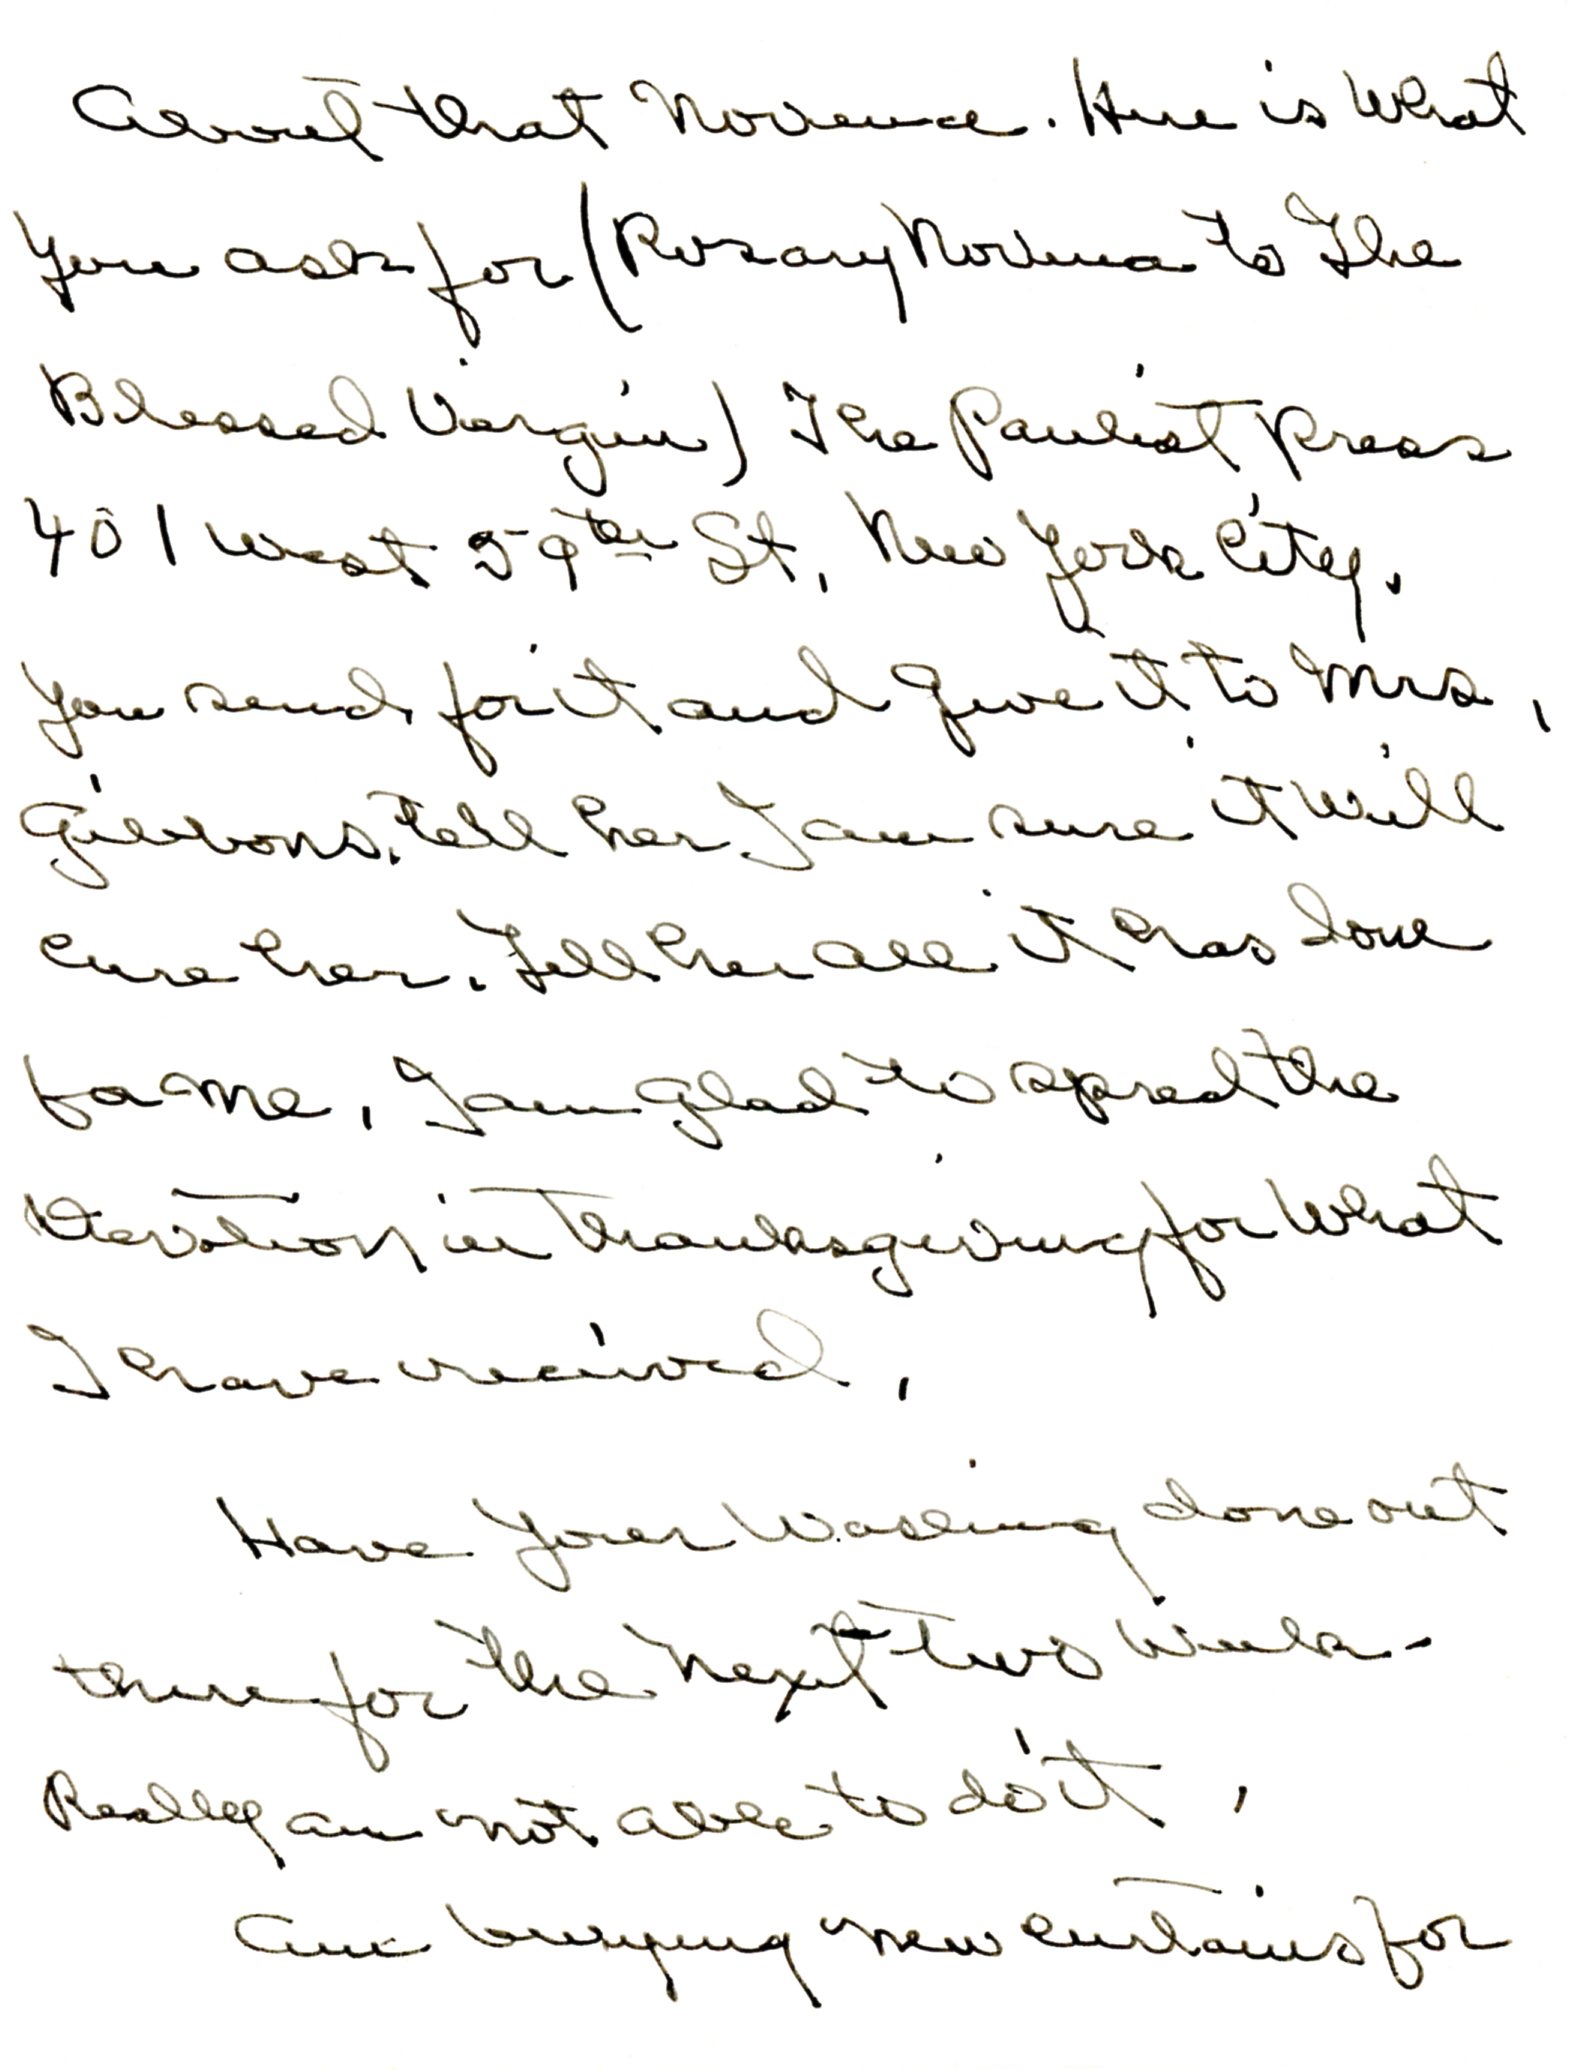 About that Novena. Here is what
you ask for (Rosary Novena to The
Blessed Virgin) The Paulist Press
401 West 59th St, New York City.
You send for it and give it to Mrs.
Gibbons, tell her I am sure it will
cure her. Tell her all it has done
for me. I am glad to spread the
Devotion in Thanksgiving for what
I have received.
Have your washing done out
there for the next two weeks -
Really am not able to do it.
Am buying new curtains for